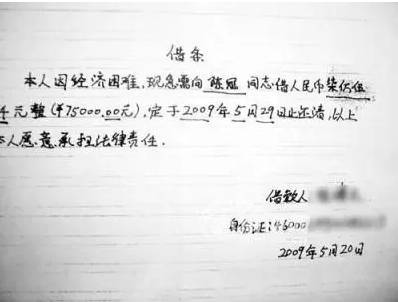 借条
本人因经济困难,现急需向陈冠同志借人民币柒仟伍
千元整(¥75000.00元),定于2009年5月29日止还清,以上
本人愿意承担法律责任.
借款人
身份证:46000
2009年5月20日